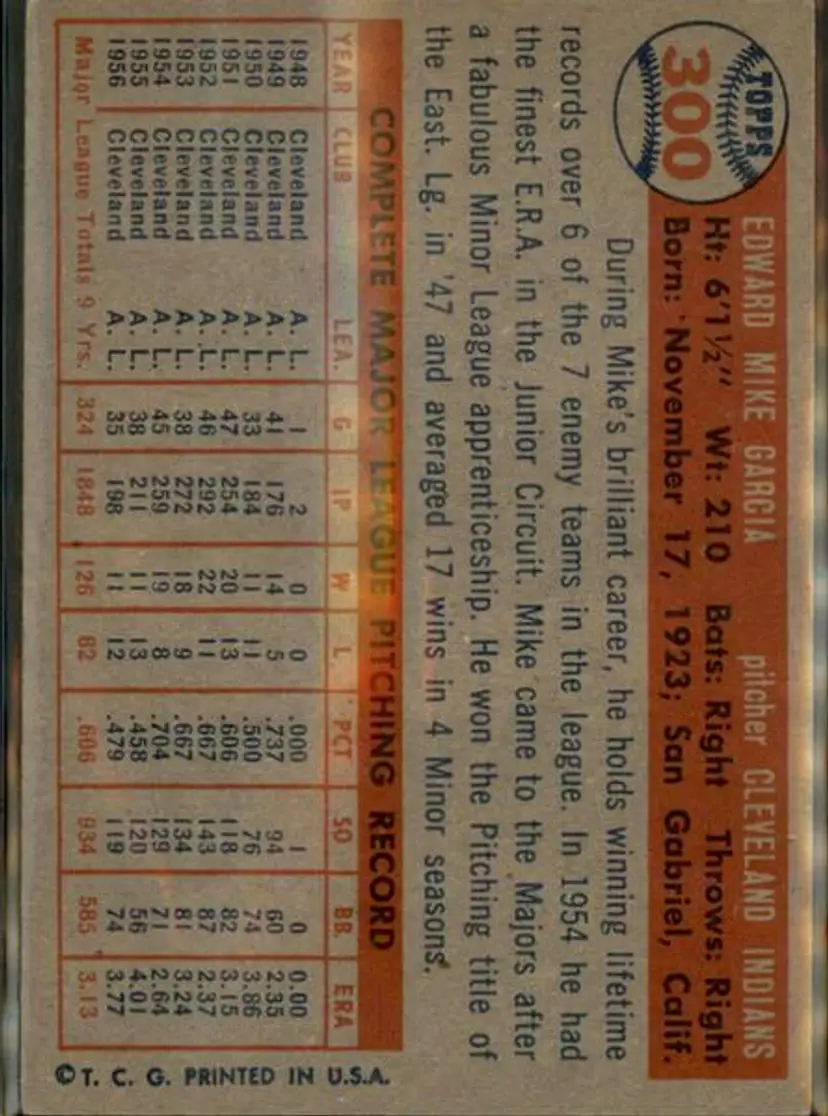 TOPPS
300
EDWARD MIKE GARCIA pitcher CLEVELAND INDIANS
Ht: 6'1½" Wt: 210 Bats: Right Throws: Right
Born: November 17, 1923; San Gabriel, Calif.
During Mike's brilliant career, he holds winning lifetime
records over 6 of the 7 enemy teams in the league. In 1954 he had
the finest E.R.A. in the Junior Circuit. Mike came to the Majors after
a fabulous Minor League apprenticeship. He won the Pitching title of
the East. Lg. in '47 and averaged 17 wins in 4 Minor seasons.
COMPLETE MAJOR LEAGUE PITCHING RECORD
YEAR CLUB LEA. G IP W L PCT SO BB. ERA
1948 Cleveland A. L. 1 2 0 0 .000 1 0 0.00
1949 Cleveland A. L. 41 176 14 5 .737 94 60 2.35
1950 Cleveland A. L. 33 184 11 11 .500 76 74 3.86
1951 Cleveland A. L. 47 254 20 13 .606 118 82 3.15
1952 Cleveland A. L. 46 292 22 11 .667 143 87 2.37
1953 Cleveland A. L. 38 272 18 9 .667 134 81 3.24
1954 Cleveland A. L. 45 259 19 8 .704 129 71 2.64
1955 Cleveland A. L. 38 211 11 13 .458 120 56 4.01
1956 Cleveland A. L. 35 198 11 12 .479 119 74 3.77
Major League Totals 9 Yrs. 324 1848 126 82 .606 934 585 3.13
© T. C. G. PRINTED IN U.S.A.